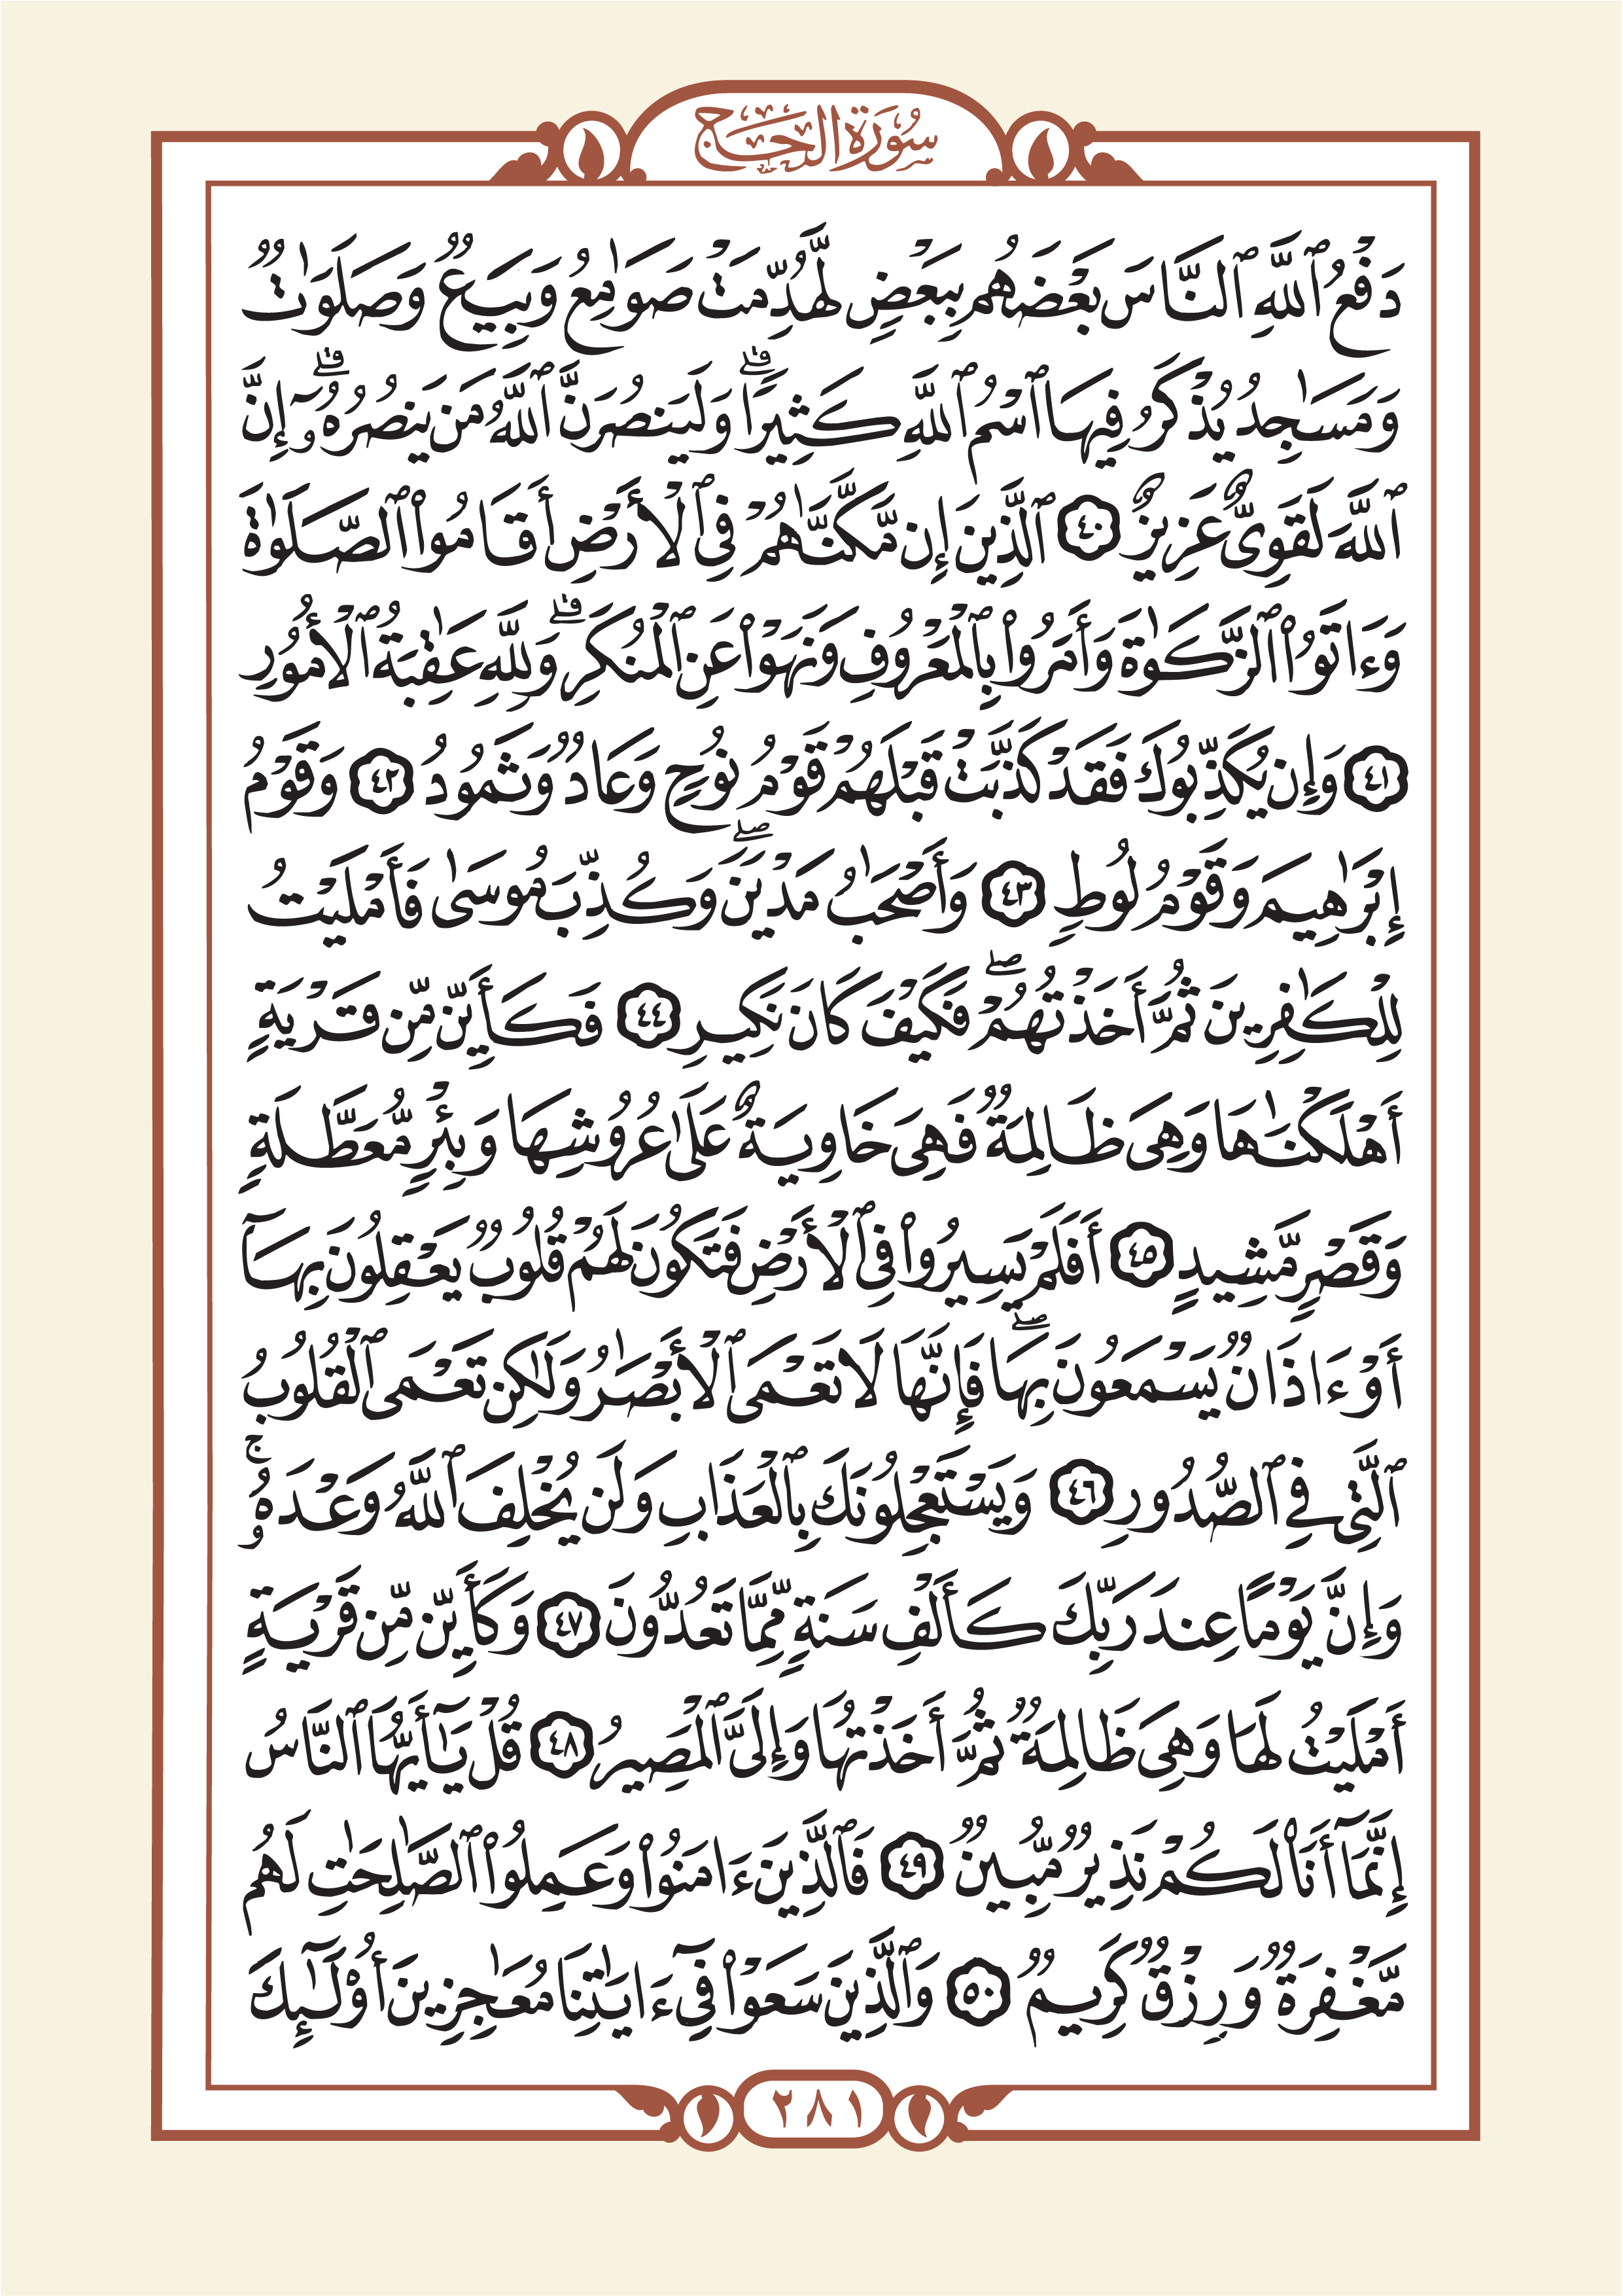 سُورَةُ الحَجّ
دَفْعُ ٱللَّهِ ٱلنَّاسَ بَعْضَهُم بِبَعْضٍ لَّهُدِّمَتْ صَوَٰمِعُ وَبِيَعٌ وَصَلَوَٰتٌ
وَمَسَٰجِدُ يُذْكَرُ فِيهَا ٱسْمُ ٱللَّهِ كَثِيرًا ۗ وَلَيَنصُرَنَّ ٱللَّهُ مَن يَنصُرُهُۥٓ ۗ إِنَّ
ٱللَّهَ لَقَوِىٌّ عَزِيزٌ ٤٠ ٱلَّذِينَ إِن مَّكَّنَّٰهُمْ فِى ٱلْأَرْضِ أَقَامُوا۟ ٱلصَّلَوٰةَ
وَءَاتَوُا۟ ٱلزَّكَوٰةَ وَأَمَرُوا۟ بِٱلْمَعْرُوفِ وَنَهَوْا۟ عَنِ ٱلْمُنكَرِ ۗ وَلِلَّهِ عَٰقِبَةُ ٱلْأُمُورِ
٤١ وَإِن يُكَذِّبُوكَ فَقَدْ كَذَّبَتْ قَبْلَهُمْ قَوْمُ نُوحٍ وَعَادٌ وَثَمُودُ ٤٢ وَقَوْمُ
إِبْرَٰهِيمَ وَقَوْمُ لُوطٍ ٤٣ وَأَصْحَٰبُ مَدْيَنَ ۖ وَكُذِّبَ مُوسَىٰ فَأَمْلَيْتُ
لِلْكَٰفِرِينَ ثُمَّ أَخَذْتُهُمْ ۖ فَكَيْفَ كَانَ نَكِيرِ ٤٤ فَكَأَيِّن مِّن قَرْيَةٍ
أَهْلَكْنَٰهَا وَهِىَ ظَالِمَةٌ فَهِىَ خَاوِيَةٌ عَلَىٰ عُرُوشِهَا وَبِئْرٍ مُّعَطَّلَةٍ
وَقَصْرٍ مَّشِيدٍ ٤٥ أَفَلَمْ يَسِيرُوا۟ فِى ٱلْأَرْضِ فَتَكُونَ لَهُمْ قُلُوبٌ يَعْقِلُونَ بِهَآ
أَوْ ءَاذَانٌ يَسْمَعُونَ بِهَا ۖ فَإِنَّهَا لَا تَعْمَى ٱلْأَبْصَٰرُ وَلَٰكِن تَعْمَى ٱلْقُلُوبُ
ٱلَّتِى فِى ٱلصُّدُورِ ٤٦ وَيَسْتَعْجِلُونَكَ بِٱلْعَذَابِ وَلَن يُخْلِفَ ٱللَّهُ وَعْدَهُۥ ۚ
وَإِنَّ يَوْمًا عِندَ رَبِّكَ كَأَلْفِ سَنَةٍ مِّمَّا تَعُدُّونَ ٤٧ وَكَأَيِّن مِّن قَرْيَةٍ
أَمْلَيْتُ لَهَا وَهِىَ ظَالِمَةٌ ثُمَّ أَخَذْتُهَا وَإِلَىَّ ٱلْمَصِيرُ ٤٨ قُلْ يَٰٓأَيُّهَا ٱلنَّاسُ
إِنَّمَآ أَنَا۠ لَكُمْ نَذِيرٌ مُّبِينٌ ٤٩ فَٱلَّذِينَ ءَامَنُوا۟ وَعَمِلُوا۟ ٱلصَّٰلِحَٰتِ لَهُم
مَّغْفِرَةٌ وَرِزْقٌ كَرِيمٌ ٥٠ وَٱلَّذِينَ سَعَوْا۟ فِىٓ ءَايَٰتِنَا مُعَٰجِزِينَ أُو۟لَٰٓئِكَ
٢٨١